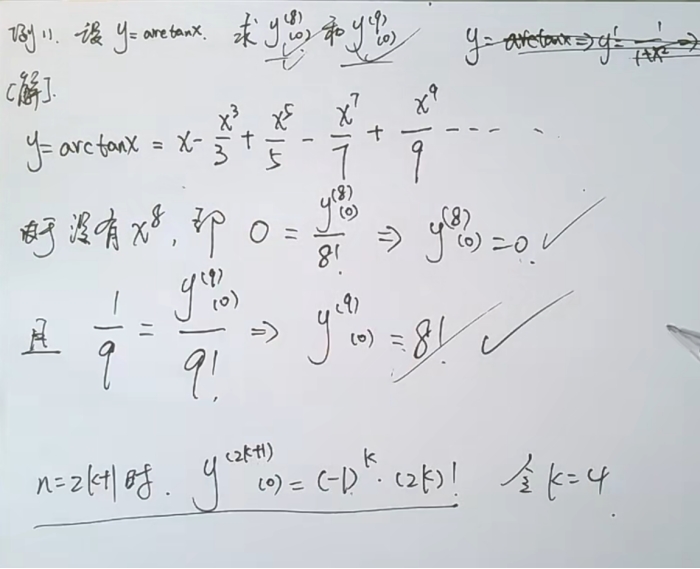 例11. 设 y=arctanx. 求 y⁽⁸⁾(0) 和 y⁽⁹⁾(0) y=arctanx⇒y'=1/(1+x²)⇒
[解].
y=arctanx = x - x³/3 + x⁵/5 - x⁷/7 + x⁹/9 -----
由于没有x⁸, 即 0 = y⁽⁸⁾(0)/8! ⇒ y⁽⁸⁾(0)=0. ✓
且 1/9 = y⁽⁹⁾(0)/9! ⇒ y⁽⁹⁾(0) = 8! ✓
n=2k+1时. y⁽²ᵏ⁺¹⁾(0) = (-1)ᵏ·(2k)! 令 k=4.